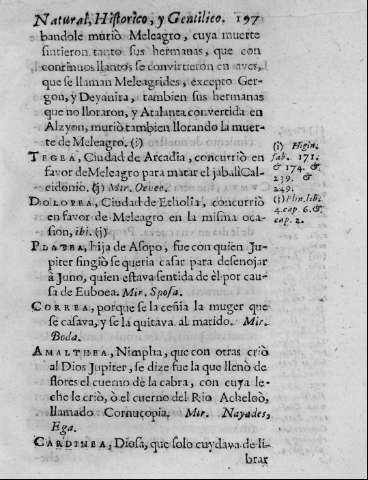 Natural, Historico, y Gentilico. 197
bandole murió Meleagro, cuya muerte
sintieron tanto sus hermanas, que con
continuos llantos se convirtieron en aves,
que se llaman Meleagrides, excepto Ger-
gon, y Deyanira, tambien sus hermanas
que no lloraron, y Atalanta convertida en
Alzyon, murió tambien llorando la muer-
te de Meleagro. (i)
(i) Higin.
TEGEA, Ciudad de Arcadia, concurrió en
fab. 171.
favor de Meleagro para matar el jabalì Cal-
& 174. &
239. &
eidonio. (j) Mir. Oeneo.
249.
DOLOPEA, Ciudad de Etholia, concurrió
(j) Plin. lib.
en favor de Meleagro en la misma oca-
4. cap. 6. &
sion, ibi. (j)
cap. 2.
PLATEA, hija de Asopo, fue con quien Ju-
piter fingió se queria casar para desenojar
à Juno, quien estava sentida de èl por cau-
sa de Euboea. Mir. Sposa.
CORREA, porque se la ceñia la muger que
se casava, y se la quitava al marido. Mir.
Boda.
AMALTHEA, Nimpha, que con otras criò
al Dios Jupiter, se dize fue la que llenò de
flores el cuerno de la cabra, con cuya le-
che le criò, ò el cuerno del Rio Acheloò,
llamado Cornucopia. Mir. Nayades,
Ega.
CARDINEA, Diosa, que solo cuydava de li-
brar